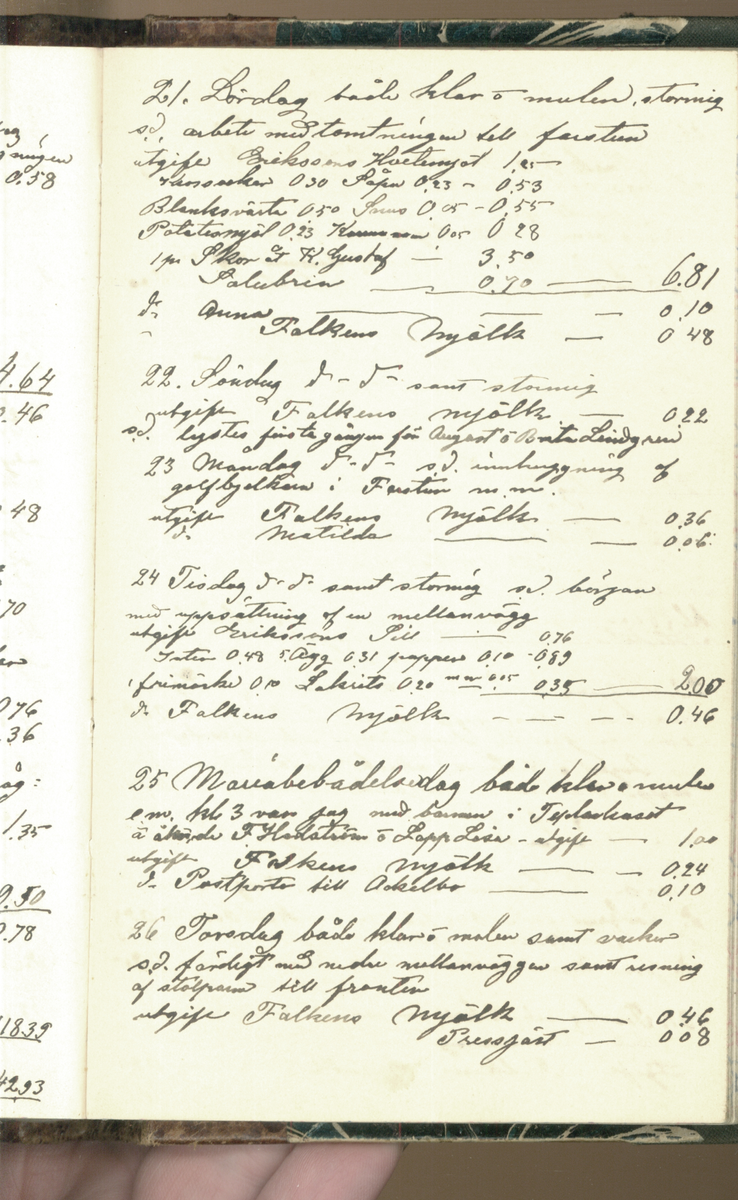 21. Lördag både klar o mulen, stormig
s.d. arbete med tomtningen till farstun
utgift Erikssons Hvetemjöl 1,25
0.30 Såpa 0.23 - 0.53
Blanksvärta 0.50 Snus 0.05 - 0.55
Potatismjöl 0.23 0.05 0.28
1 pr Skor åt K. Gustaf — 3.50
Salubrin 0.70 — 6.81
do Anna — 0.10
" Falkens Mjölk — 0.48
22. Söndag d- d- samt stormig
utgift Falkens Mjölk — 0.22
s.d. lystes första gången för August o Brita Lindgren
23 Måndag d- d- s.d. inbyggning af
golfbjelkan i Farstun m.m.
utgift Falkens Mjölk — 0.36
do Matilda — 0.06
24 Tisdag d- d- samt stormig s.d. början
med uppsättning af en mellanvägg
utgift Erikssons Sill — 0.76
0.48 5 Ägg 0.31 papper 0.10 - 0.89
1 frimärke 0.10 Lakrits 0.20 m m 0.05 0.35 — 2.00
do Falkens Mjölk — 0.46
25 Mariæbebådelsedag både klar o mulen
e.m. kl 3 var jag med barnen i
å T. Hedström o Lapp Lisa - utgift — 1.00
utgift Falkens Mjölk — 0.24
do Postporto till Ockelbo — 0.10
26 Torsdag både klar o mulen samt vacker
s.d. färdigt med nedre mellanväggen samt resning
af stolparna till fronten
utgift Falkens Mjölk — 0.46
Pressjäst — 0.08
0.58
4.64
0.46
48
70
0.76
.36
1.35
9.50
0.78
1839
4293